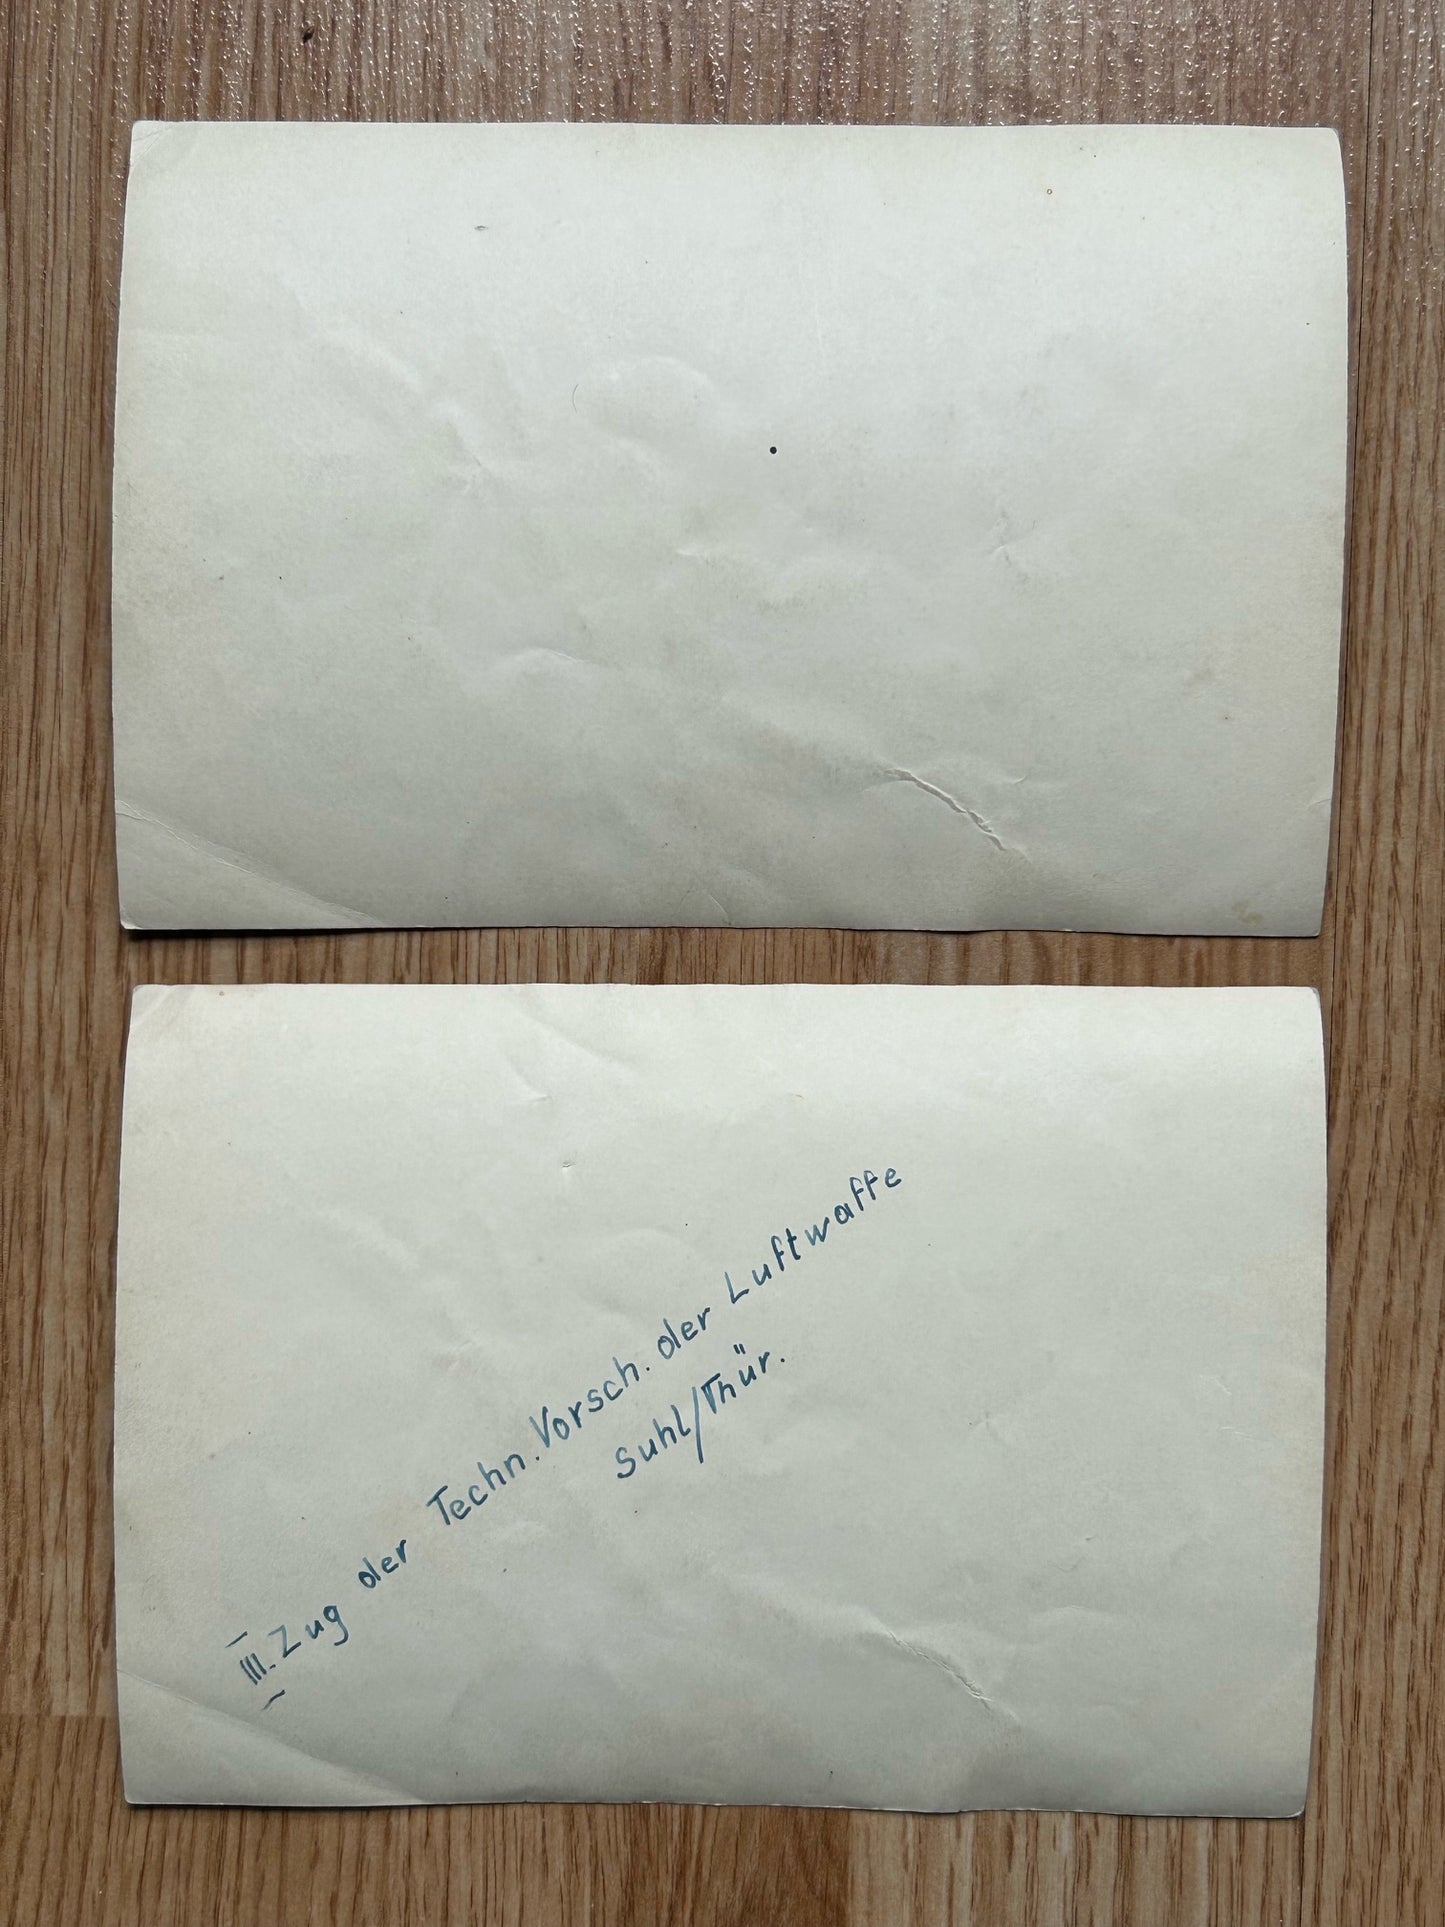 III. Zug der Techn. Vorsch. der Luftwaffe
Suhl/Thür.